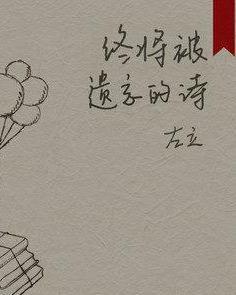 终将被
遗忘的诗
左立